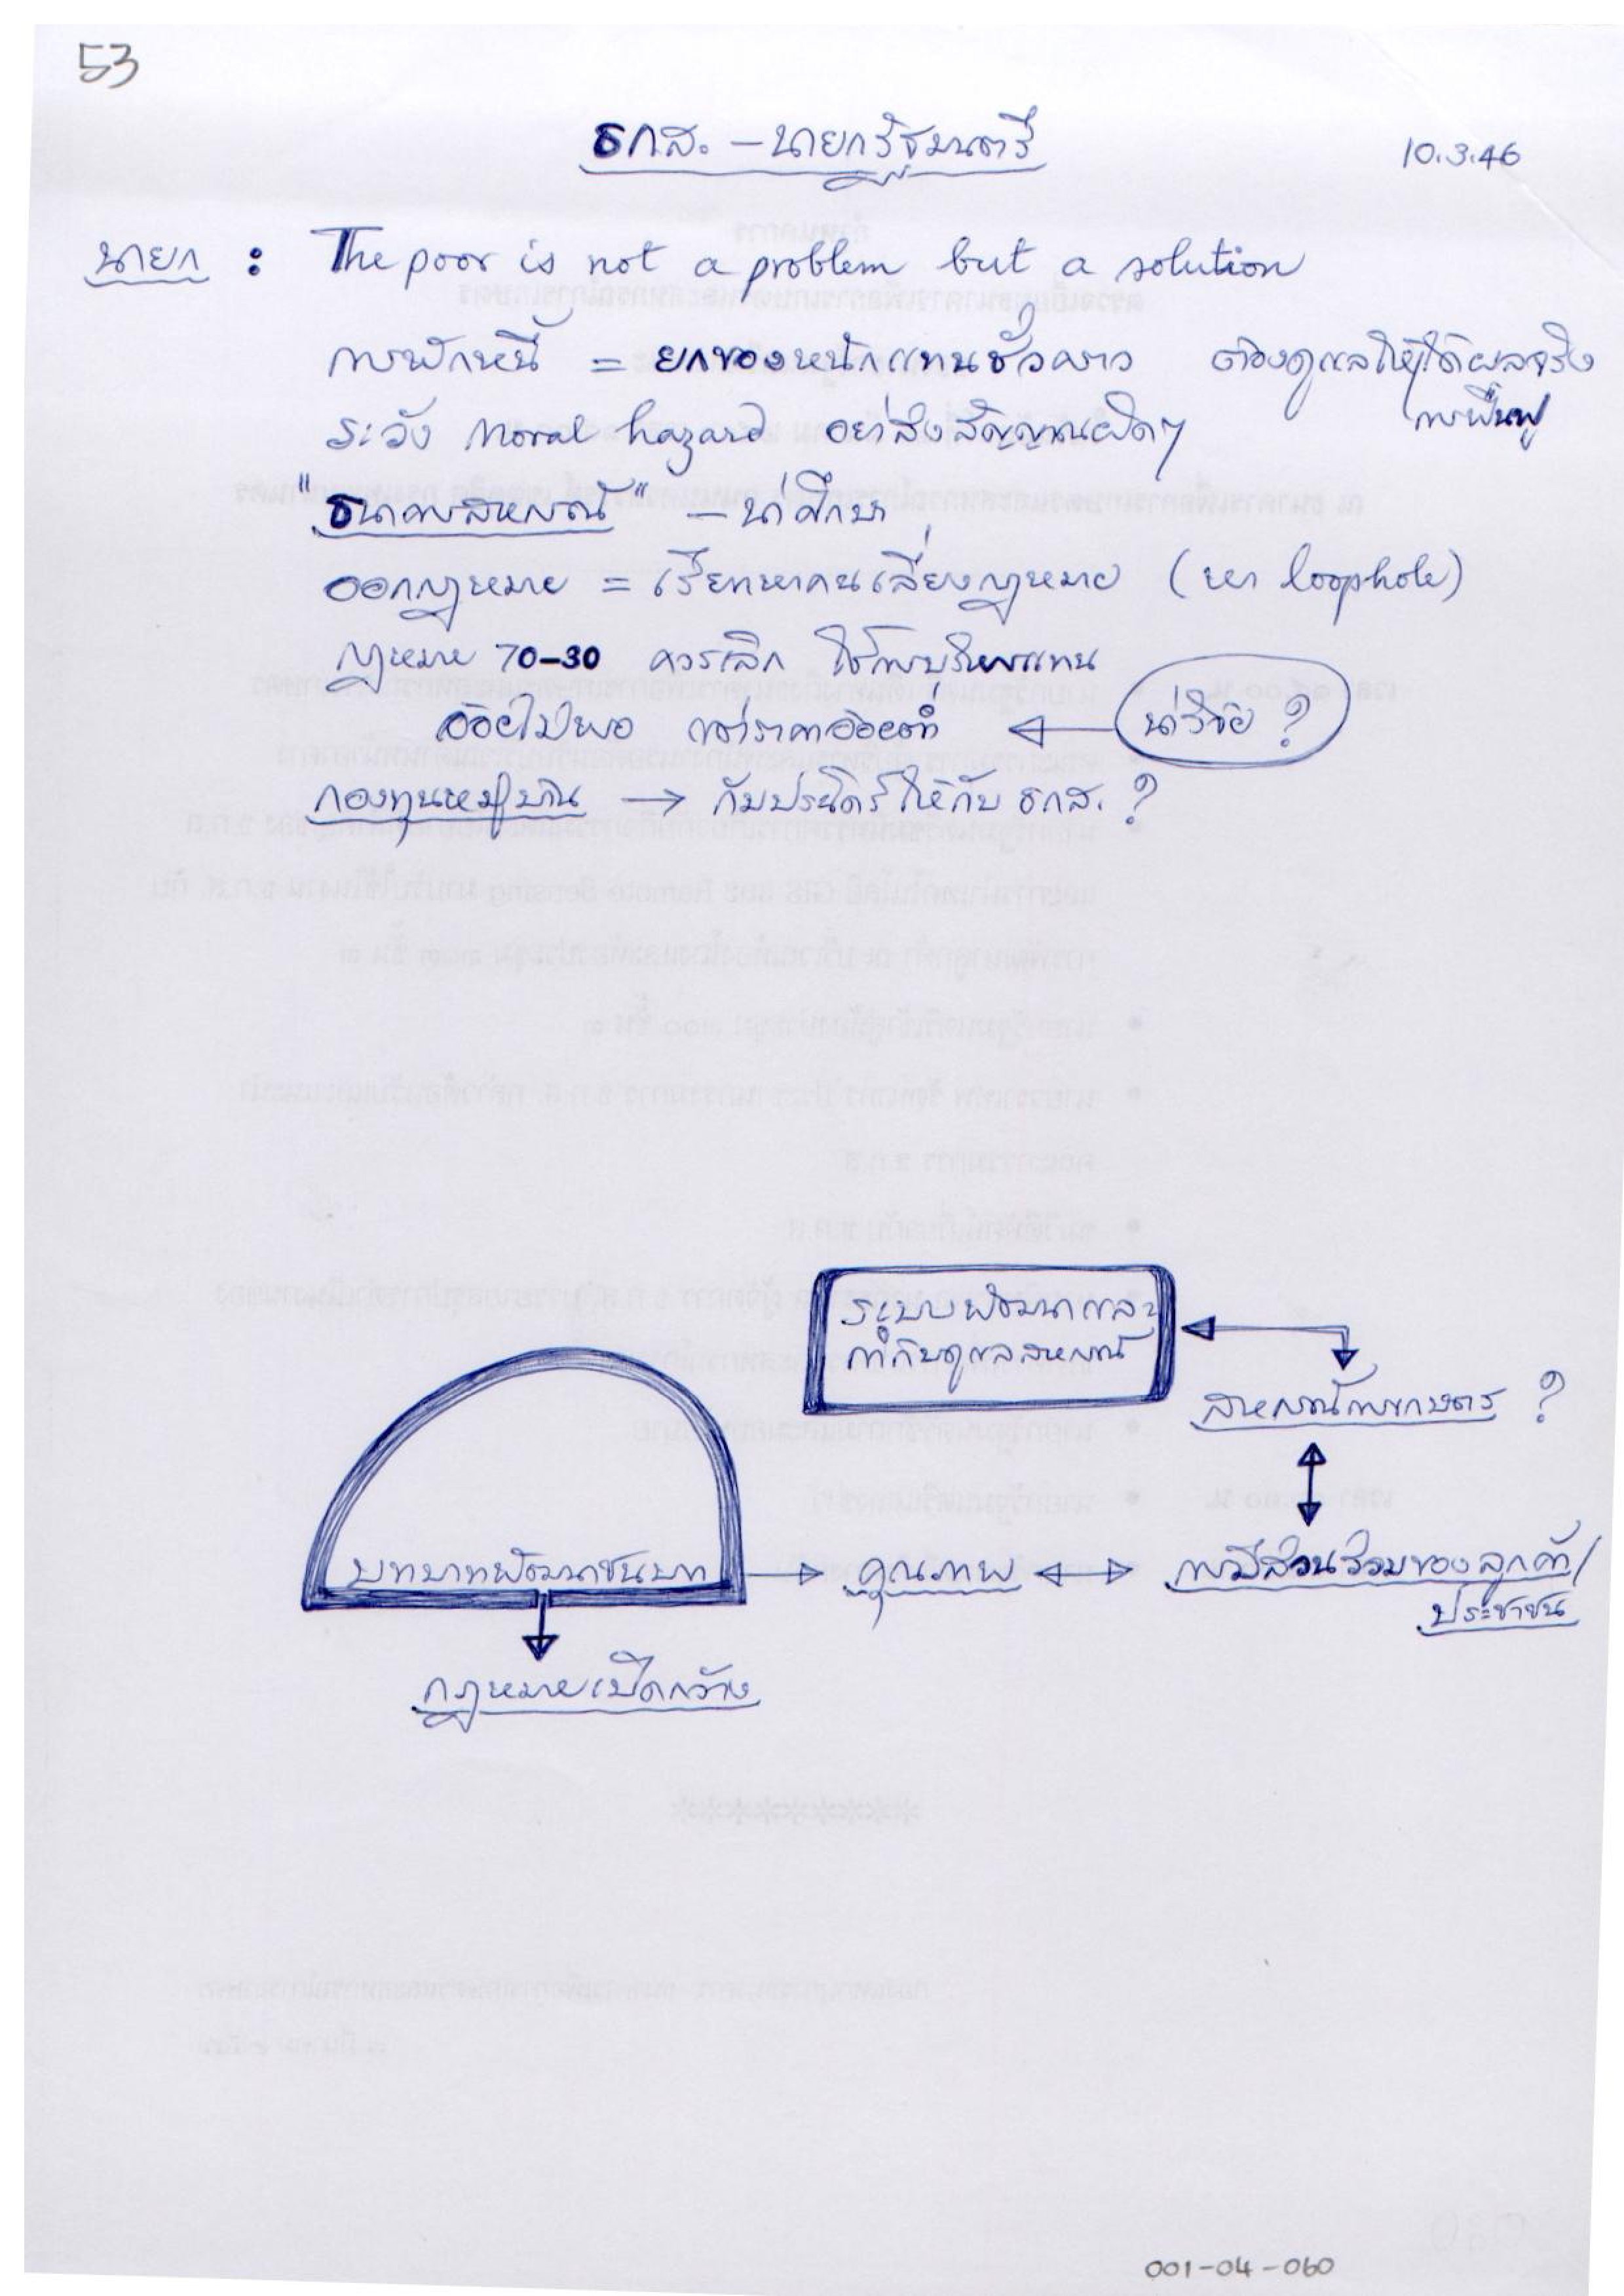 53
ธกส. - นายกรัฐมนตรี
10.3.46
นายก : The poor is not a problem but a solution
การพักหนี้ = ยกของหนักแทนชั่วคราว ต้องดูแลให้ได้ผลจริง
การฟื้นฟู
ระวัง Moral hazard อย่าส่งสัญญาณผิดๆ
"ธนาคารสหกรณ์" - น่าศึกษา
ออกกฎหมาย = เรียกหาคนเลี่ยงกฎหมาย (หา loophole)
กฎหมาย 70-30 ควรเลิก ใช้การบริหารแทน
อ้อยไม่พอ แต่ราคาอ้อยต่ำ ← น่าวิจัย ?
กองทุนหมู่บ้าน → กับประนิติ ให้กับ ธกส. ?
ระบบพัฒนาและ
กำกับดูแลสหกรณ์
สหกรณ์การเกษตร ?
บทบาทพัฒนาชนบท → คุณภาพ ↔ การมีส่วนร่วมของลูกค้า/
ประชาชน
กฎหมายเปิดกว้าง
001-04-060